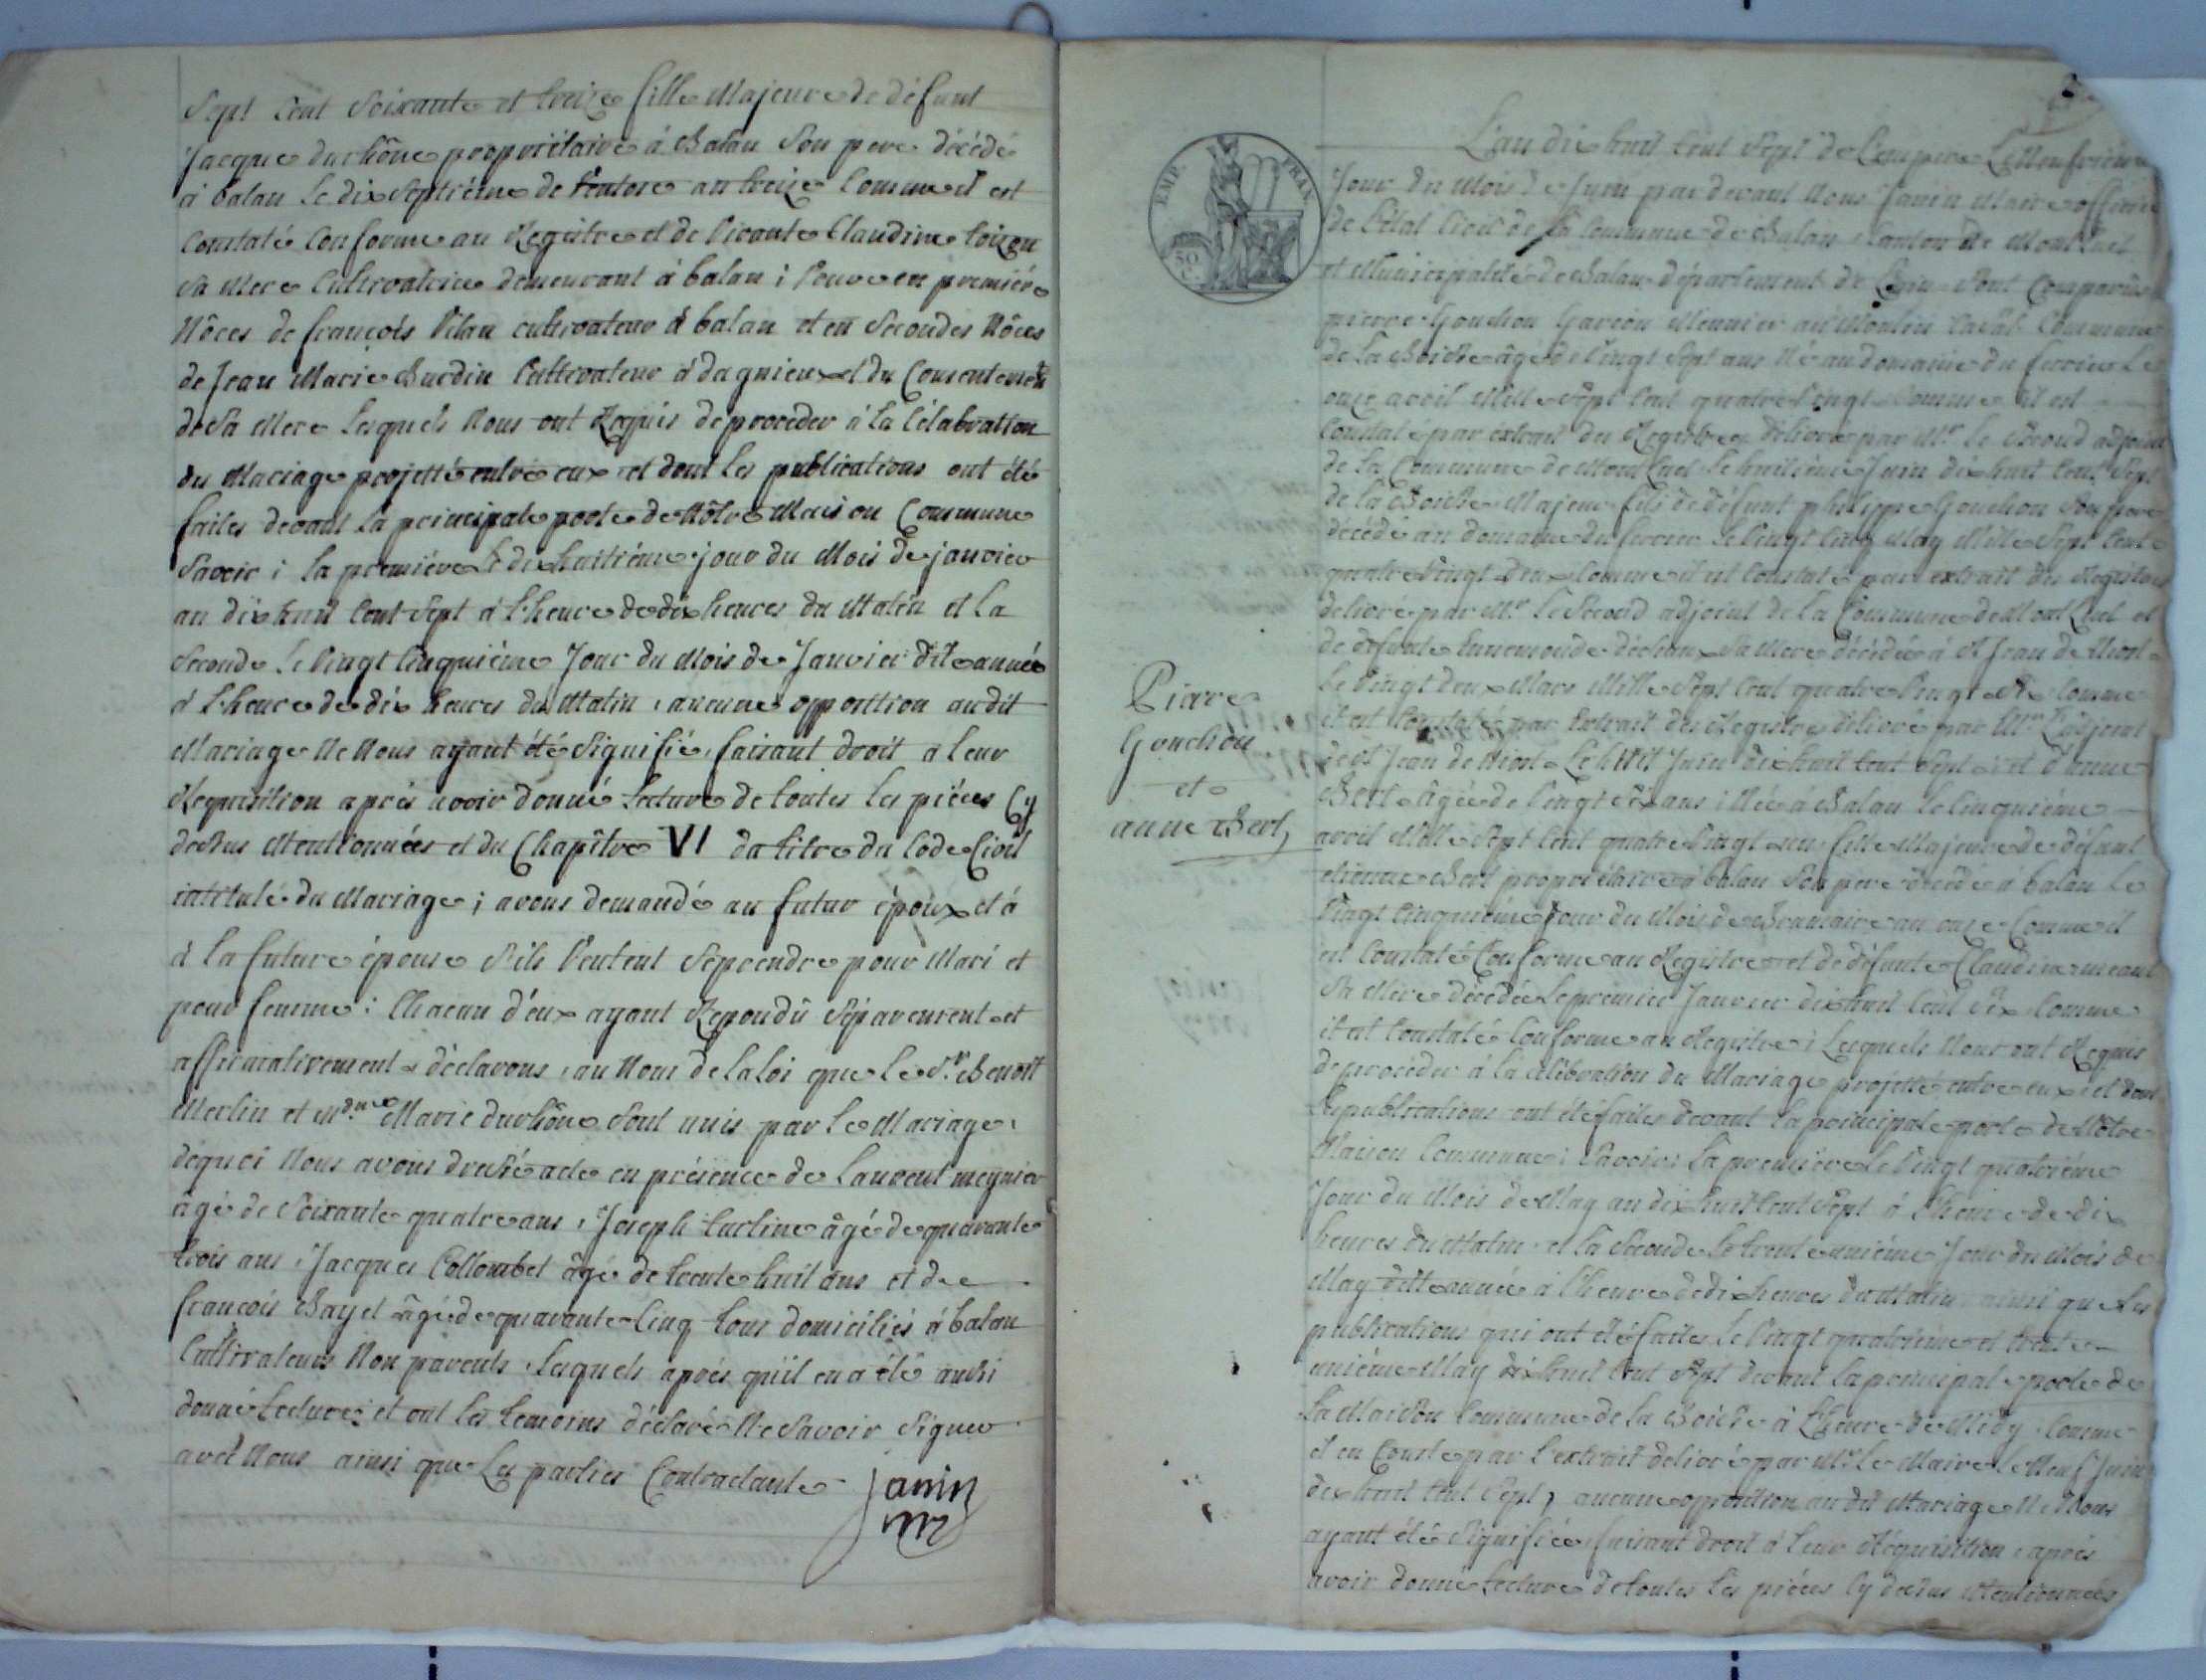 Sept Cent Soixante et treize fille Majeure de défunt
Jacque durhône propriétaire à Balan Son pere décédé
à balan le dix Septième de Ventose an treize Comme il est
Constaté Conforme au Registre et de vivante Claudine
Sa Mere Cultivatrice demeurant à balan ; veuve en première
Nôces de françois vilan cultivateur à balan et en Secondes Nôces
de Jean Marie Burdin Cultivateur à dagnieux et du Consentement
de Sa Mere lesquels Nous ont Requis de procéder à la Célébration
du Mariage projetté entre eux et dont les publications ont été
faites devant la principale porte de Nôtre Maison Commune
Savoir ; la première le dix huitième jour du Mois de janvier
an dix huit Cent Sept à l'heure de dix heures du Matin et la
Seconde le vingt Cinquième Jour du Mois de Janvier dite année
à l'heure de dix heures du Matin , aucune opposition audit
Mariage Ne Nous ayant été Signifié , faisant droit a leur
Requisition après avoir donné lecture de toutes les pièces Cy
dessus Mentionnées et du Chapitre VI du titre du Code Civil
intitulé du Mariage ; avons demandé au futur époux et à
à la future épouse S'ils veulent Se prendre pour Mari et
pour femme : Chacun d'eux ayant Repondû Séparement et
affirmativement déclarons , au Nom de la loi que le Sr. Benoit
Merlin et Mdme Marie durhône Sont unis par le Mariage ,
dequoi Nous avons dressé acte en présence de Laurent meynier
âgé de Soixante quatre ans , Joseph turline âgé de quarante
trois ans , Jacques Collombet âgé de trente huit ans et de
françois Bayet âgé de quarante Cinq tous domiciliés à balan
Cultivateurs Non parents , lesquels après qu'il en a été aussi
donné lecture ; et ont les temoins déclaré Ne Savoir Signer
avec Nous ainsi que les parties Contractante Janin
EMP. FRAN.
50 C.
Pierre
Gouchon
et
anne Bert
L'an dix huit Cent Sept de l'empire le Neufvieme
Jour du Mois de Juin par devant Nous Janin Maire officier
de l'état Civil de la Commune de Balan , Canton de Montluel
et Municipalité de Balan département de l'ain Sont Comparûs
pierre Gouchon Garcon Meunier au Moulin Commune
de la Boisse âgé de vingt Sept ans Né au domaine du le
onze avril Mille Sept Cent quatre vingt Comme il est
Constaté par extrait du Registre délivré par Mr. le Second adjoint
de la Commune de Montluel le huitième Juin dix huit Cent Sept
de la Boisse Majeur fils de défunt philippe Gouchon Son pere
décédé au domaine du le vingt Cinq May Mille Sept Cent
quatre vingt Comme il est Constaté par extrait du Registre
délivré par Mr. le Second adjoint de la Commune de Montluel et
de défunte Sa Mere décédée à St Jean de Niost
le vingt deux Mars Mille Sept Cent quatre vingt Comme
il est Constaté par Extrait du Registre délivré par Mr. l'adjoint
de St Jean de Niost le huit Juin dix huit Cent Sept ; et d'anne
Bert âgée de vingt Six ans ; Née à Balan le Cinquième
avril Mille Sept Cent quatre vingt un fille Majeure de défunt
etienne Bert propriétaire à balan Son pere décédé à balan le
vingt Cinquième Jour du Mois de Brumaire an onze Comme il
est Constaté Conforme au Registre et de défunte Claudine
Sa Mère décédée le premier Janvier dix huit Cent Six Comme
il est Constaté Conforme au Registre ; lesquels Nous ont Requis
de procéder à la célébration du Mariage projetté entre eux et dont
les publications ont été faites devant la principale porte de Nôtre
Maison Commune ; Savoir ; la première le vingt quatrième
Jour du Mois de May an dix huit Cent Sept à l'heure de dix
heures du Matin et la Seconde le trente unième Jour du Mois de
May dite année à l'heure de dix heures du Matin ainsi que les
publications qui ont été faites le vingt quatrième et trente
unième May dix huit Cent Sept devant la principale porte de
la Maison Commune de la Boisse à l'heure de Midy , Comme
il en Conste par l'extrait délivré par Mr. le Maire le Neuf Juin
dix huit Cent Sept , aucune opposition au dit Mariage Ne Nous
ayant été Signifiée faisant droit à leur Réquisition , après
avoir donné lecture de toutes les pièces Cy dessus Mentionnées